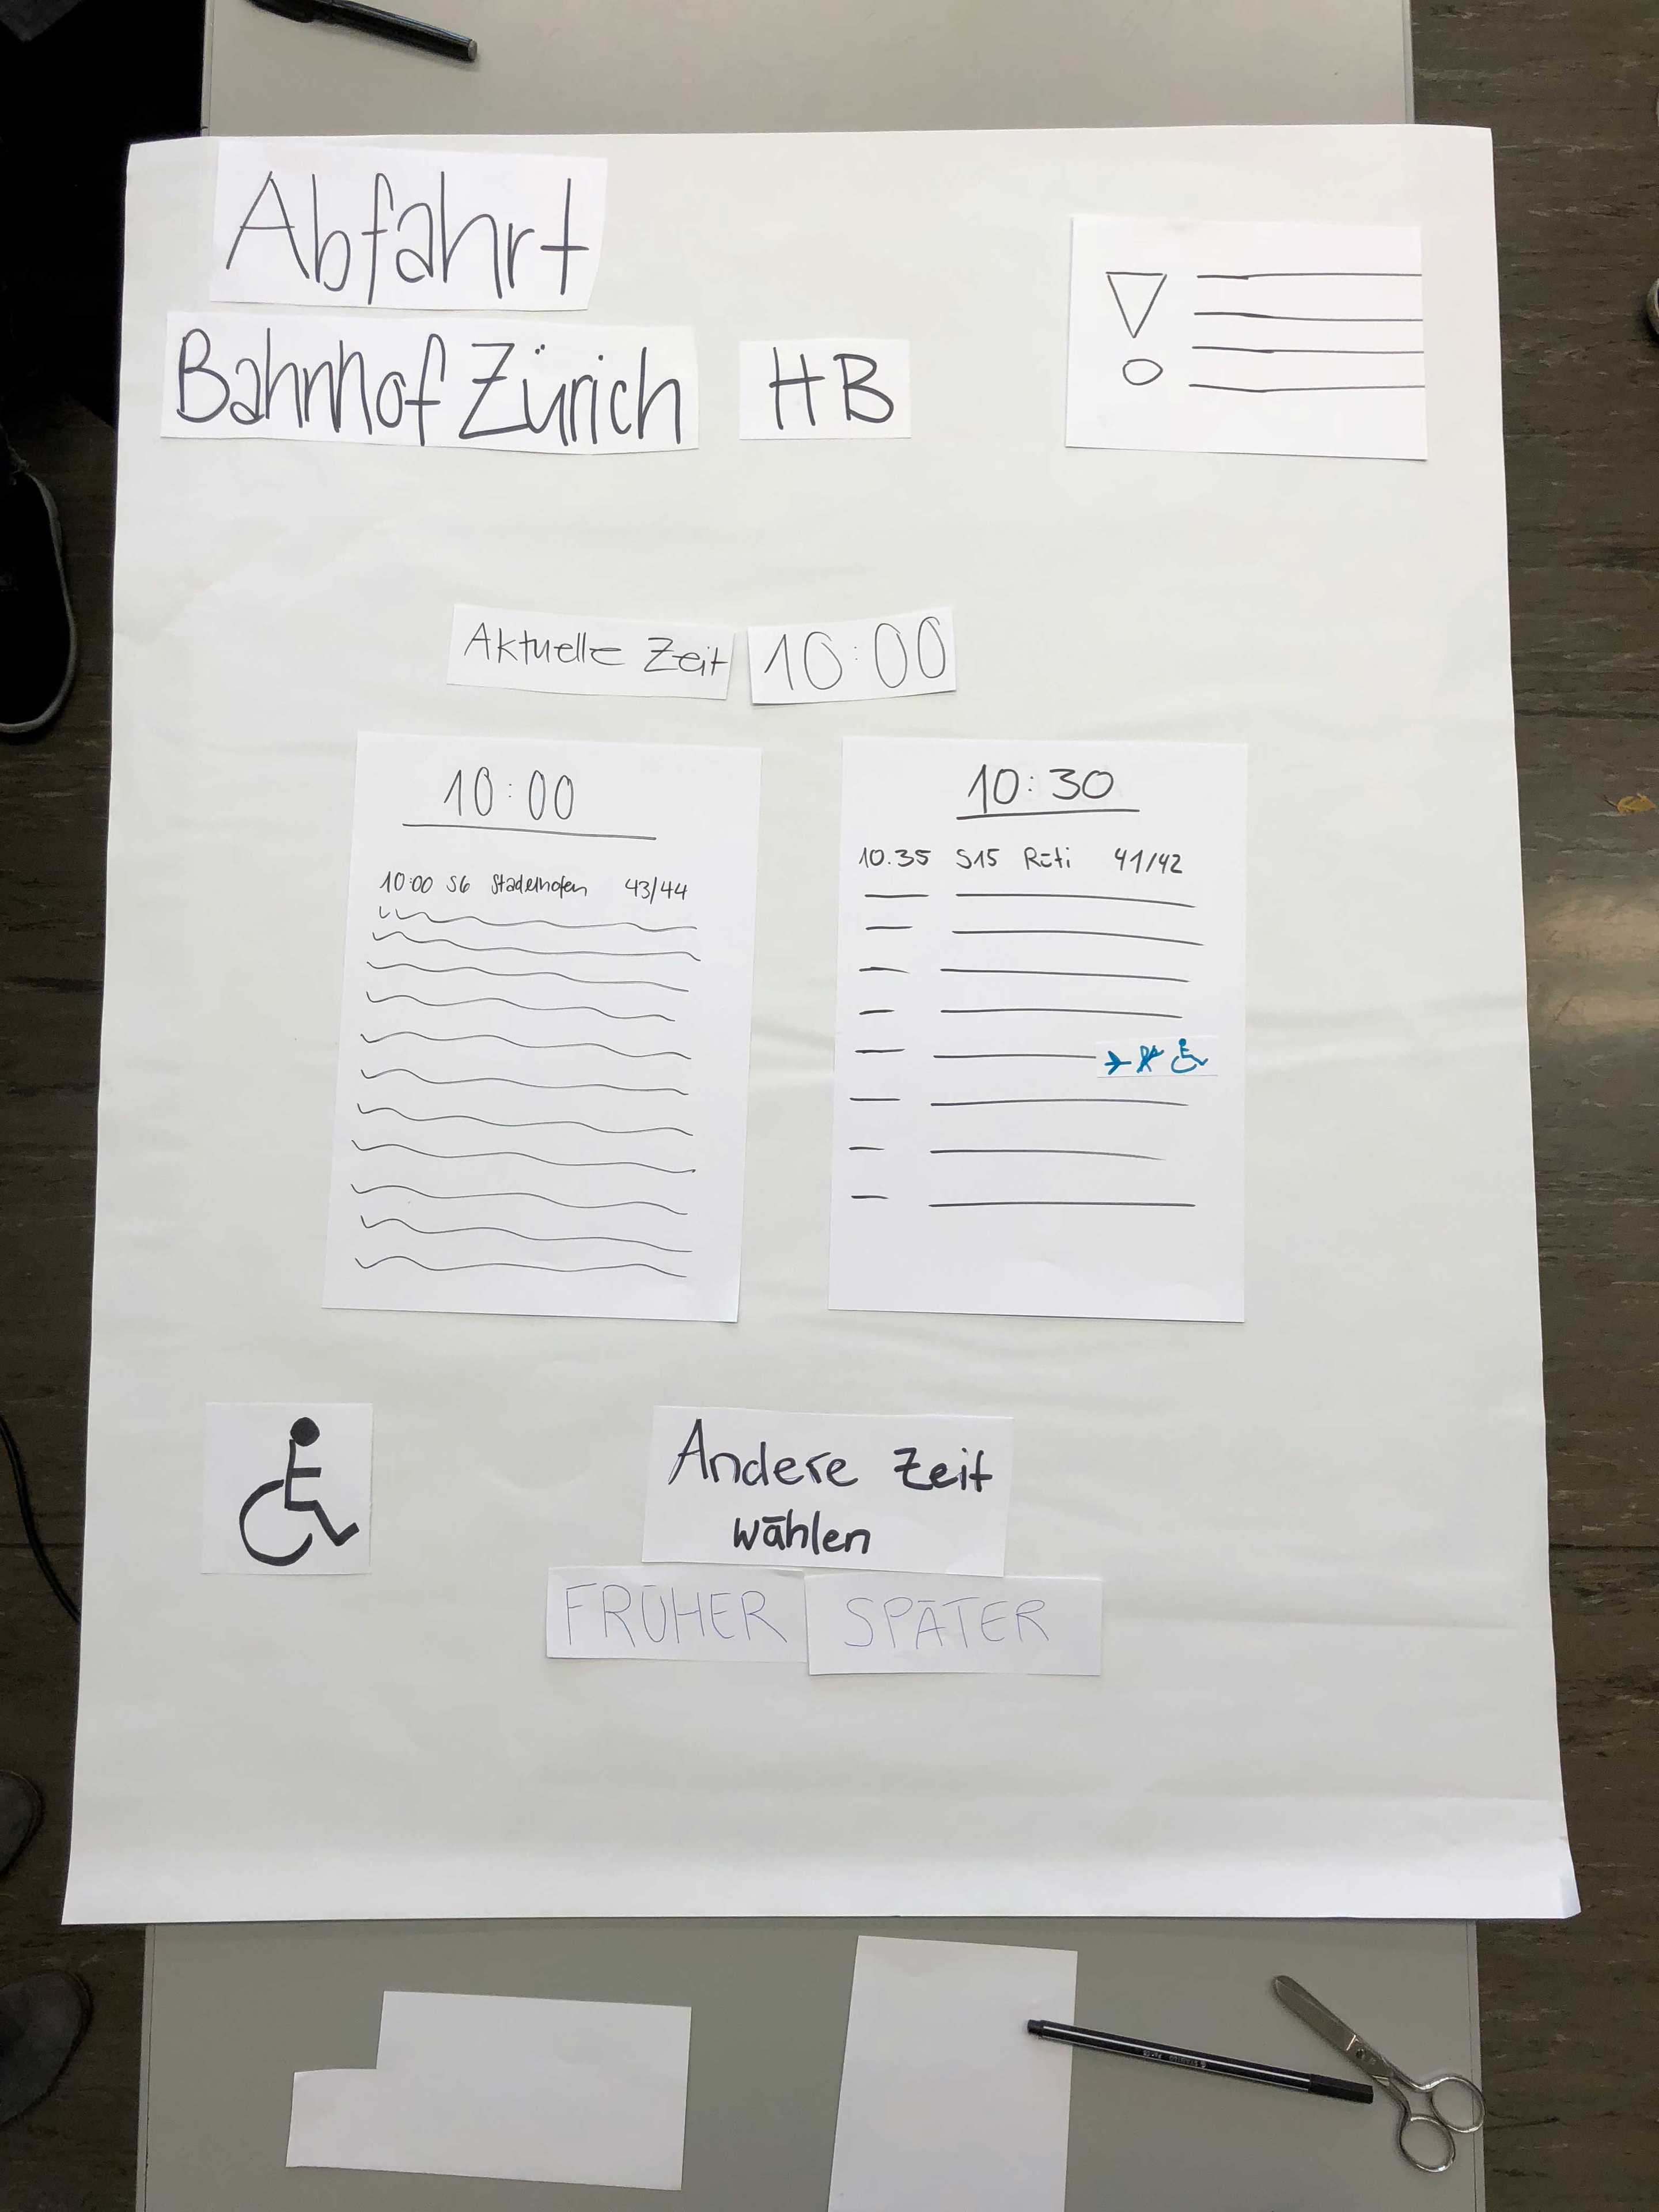 Abfahrt
Bahnhof Zürich HB
Aktuelle Zeit 10:00
10:00
10:00 S6 Stadelhofen 43/44
10:30
10.35 S15 Rüti 41/42
Andere Zeit
wählen
FRÜHER SPÄTER